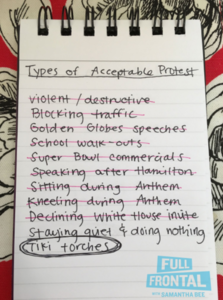 Types of Acceptable Protest
violent / destructive
Blocking traffic
Golden Globes speeches
School walk-outs
Super Bowl commercials
Speaking after Hamilton
Sitting during Anthem
Kneeling during Anthem
Declining White House invite
Staying quiet & doing nothing
Tiki torches
FULL
FRONTAL
WITH SAMANTHA BEE